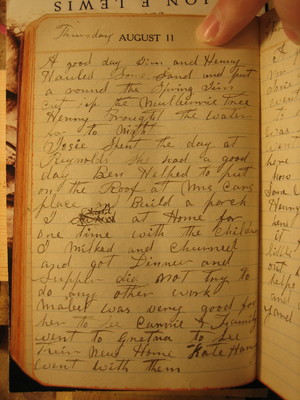 ON E LEWIS
Thursday
AUGUST 11
A good day Jim and Henry
Hauled Some Sand and put
a round the Spring Jim
Cut up the Mulberrie tree
Henry Brought the water
to Night
Josie Spent the day at
Reynolds She had a good
day Ben Helped to put
on the Roof at Mrs Cans
place & Build a porch
I at Home for
one time with the Childre
I Milked and Churned
and got Dinner and
Supper did Not try To
do any other work
Mabel was very good for
her to See Cammie & Family
went to Gretna to See
Their New Home Kate Han
went with them